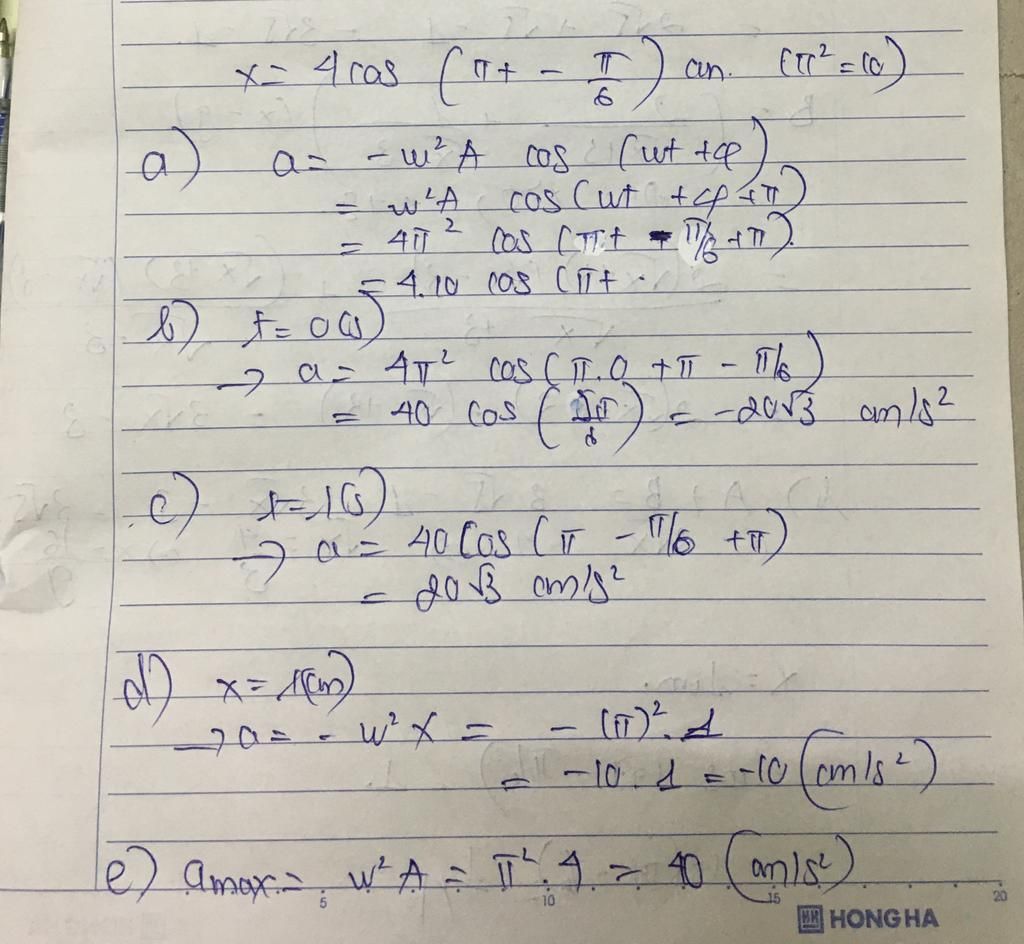 x = 4 cos (πt - π/6) cm. (π² = 10)
a) a = - ω² A cos (ωt + φ)
= ω²A cos (ωt + φ + π)
= 4π² cos (πt - π/6 + π).
= 4.10 cos (πt
b) t = 0 (s)
→ a = 4π² cos (π.0 + π - π/6)
= 40 cos (5π/6) = -20√3 cm/s²
c) t = 1 (s)
→ a = 40 cos (π - π/6 + π)
= 20√3 cm/s²
d) x = 1 (cm)
→ a = - ω² x = - (π)². 1
= -10 . 1 = -10 (cm/s²)
e) amax = ω²A = π² . 4 = 40 (cm/s²)
5 10 15 20
HONG HA